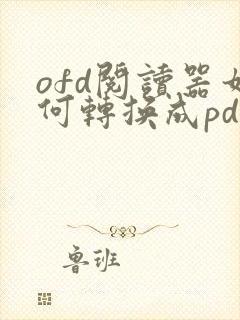 ofd閱讀器如
何轉換成pd
魯班